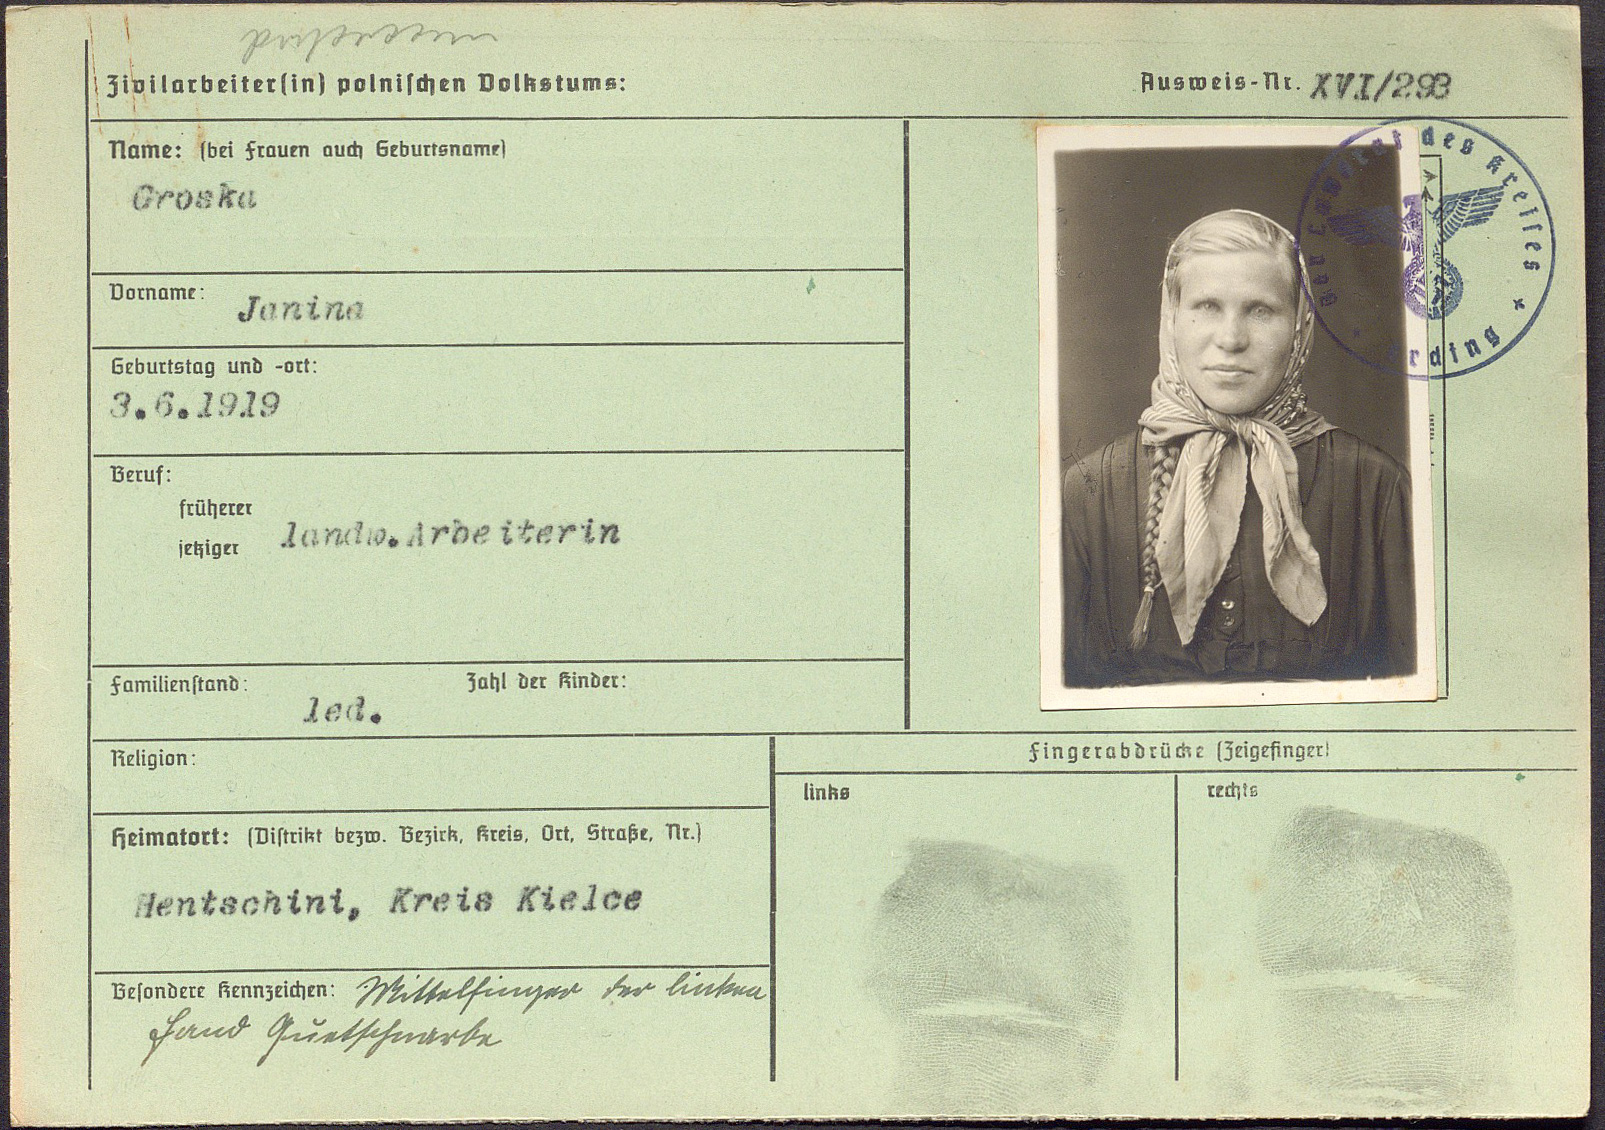 Zivilarbeiter(in) polnischen Volkstums:
Ausweis-Nr. XVI/293
Name: (bei Frauen auch Geburtsname)
Groska
Vorname:
Janina
Geburtstag und -ort:
3.6.1919
Beruf:
früherer
jetziger
landw. Arbeiterin
Familienstand:
led.
Zahl der Kinder:
Der Landrat des Kreises
Erding
Religion:
Heimatort: (Distrikt bezw. Bezirk, Kreis, Ort, Straße, Nr.)
Hentschini, Kreis Kielce
Besondere Kennzeichen: Mittelfinger der linken
Hand Quetschnarbe
Fingerabdrücke (Zeigefinger)
links
rechts